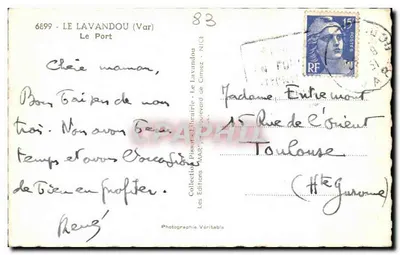 6899 - LE LAVANDOU (Var)
Le Port
83
Chère maman,
Bons Baisers de nous
trois. Nous avons beau
temps et avons l'occasion
de bien en profiter.
René
Collection Librairie - Le Lavandou
Les Editions "MAR" boulevard de Cimiez - NICE
CPAPHIL
15F
POSTES
RF
Madame Entremont
15 Rue de l'Orient
Toulouse
(Hte Garonne)
Photographie Véritable